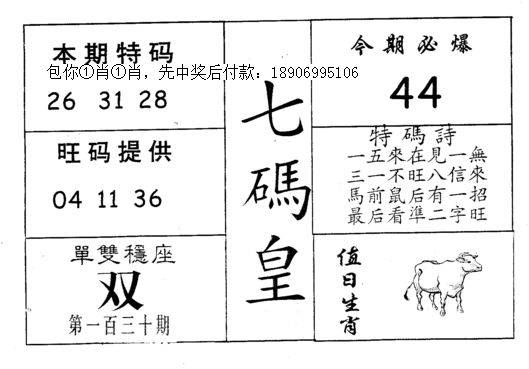 本期特码
包你①肖①肖，先中奖后付款：18906995106
26 31 28
旺码提供
04 11 36
單雙穩座
双
第一百三十期
七碼皇
今期必爆
44
特碼詩
一五來在見一無
三一不旺八信來
馬前鼠后有一招
最后看準二字旺
值日生肖